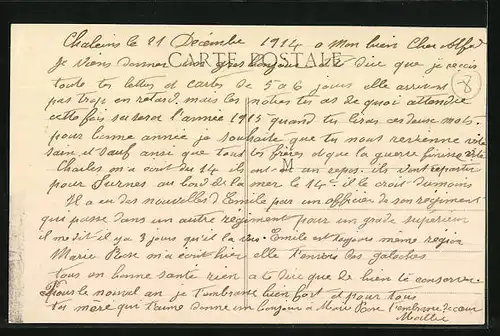 Chaleins le 21 Décembre 1914 a Mon bien Cher Alfred
CARTE POSTALE
je viens donner mon gros bonjour et te dire que je reçois
toute tes lettres et cartes de 5 a 6 jours elle arrivent
pas trop en retard, mais les notres tu as de quoi attendre
cette fois se sera l'année 1915 quand tu liras ces deux mots.
pour bonne année je souhaite que tu nous revienne vite
sain et sauf ainsi que tous tes frères et que la guerre finisse vite
Charles m'a écrit du 14 ils ont un repos. ils vont repartir
pour Furnes au bord de la mer le 14 il le croit du moins
Il a eu des nouvelles d'Emile par un officier de son régiment
qui passe dans un autre régiment pour un grade supérieur
il me dit il y a 3 jours qu'il l'a vu. Emile est toujours même région
Marie Rose m'a écrit hier elle t'envoie les galoches
tous en bonne santé rien a te dire que de bien te conserver
Pour le nouvel an je t'embrasse bien fort et pour tous
ta mère qui t'aime donne un bonjour à
M
8